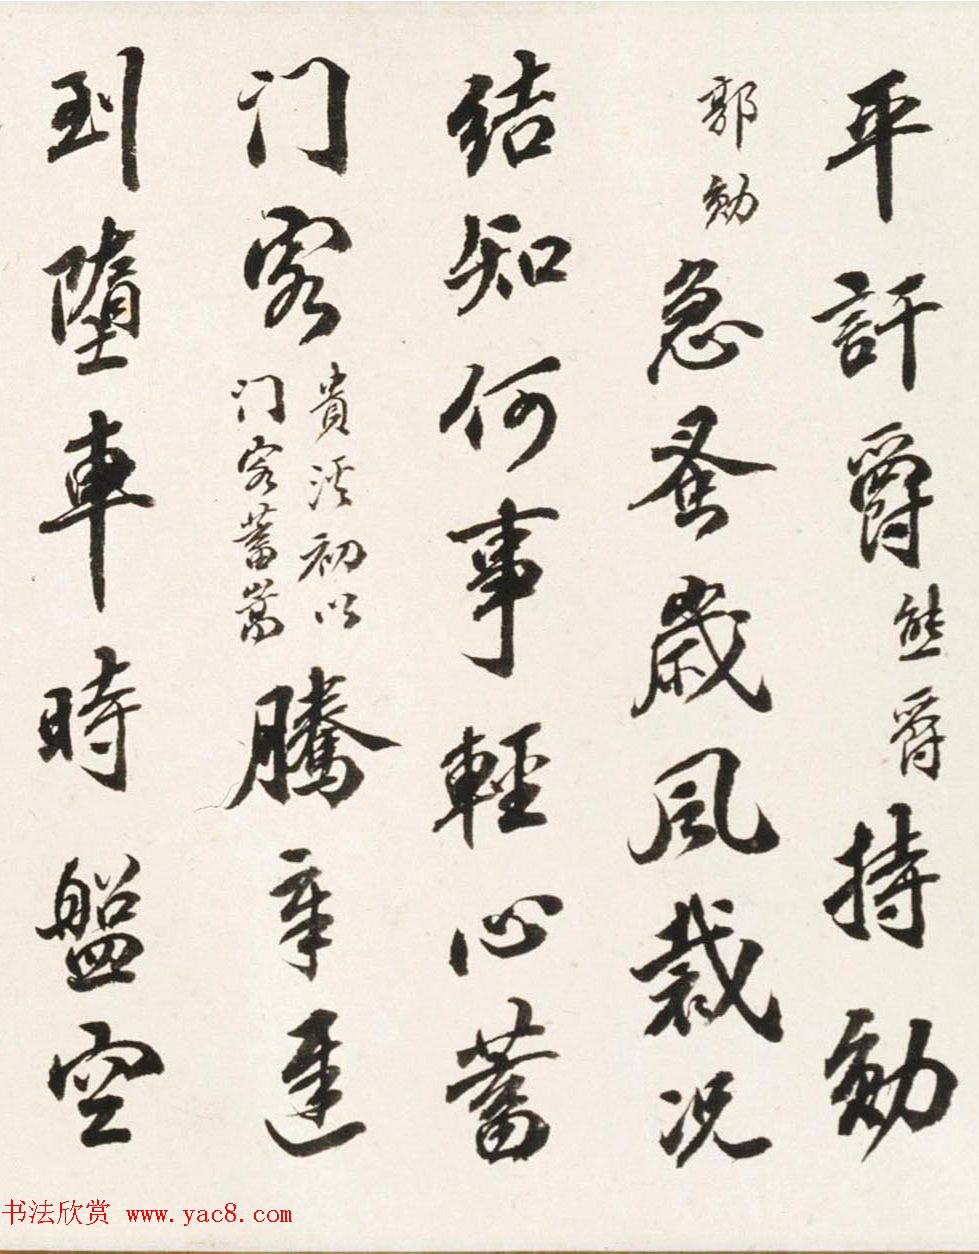 平訐爵熊爵持勛
郭勛急蚤歲風裁况
結知何事輕心蓄
门客貴溪初以门客蓄嵩騰章達
到墮車時盤空
书法欣赏 www.yac8.com